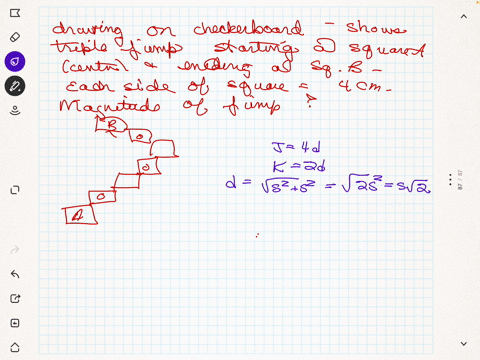 drawing on checkerboard - shows
triple jump starting @ square A
(center) & ending @ Sq. B -
Each side of square = 4 cm.
Magnitude of jump ?
B
O
J = 4d
O
K = 2d
d = √s²+s² = √2s² = s√2
O
A